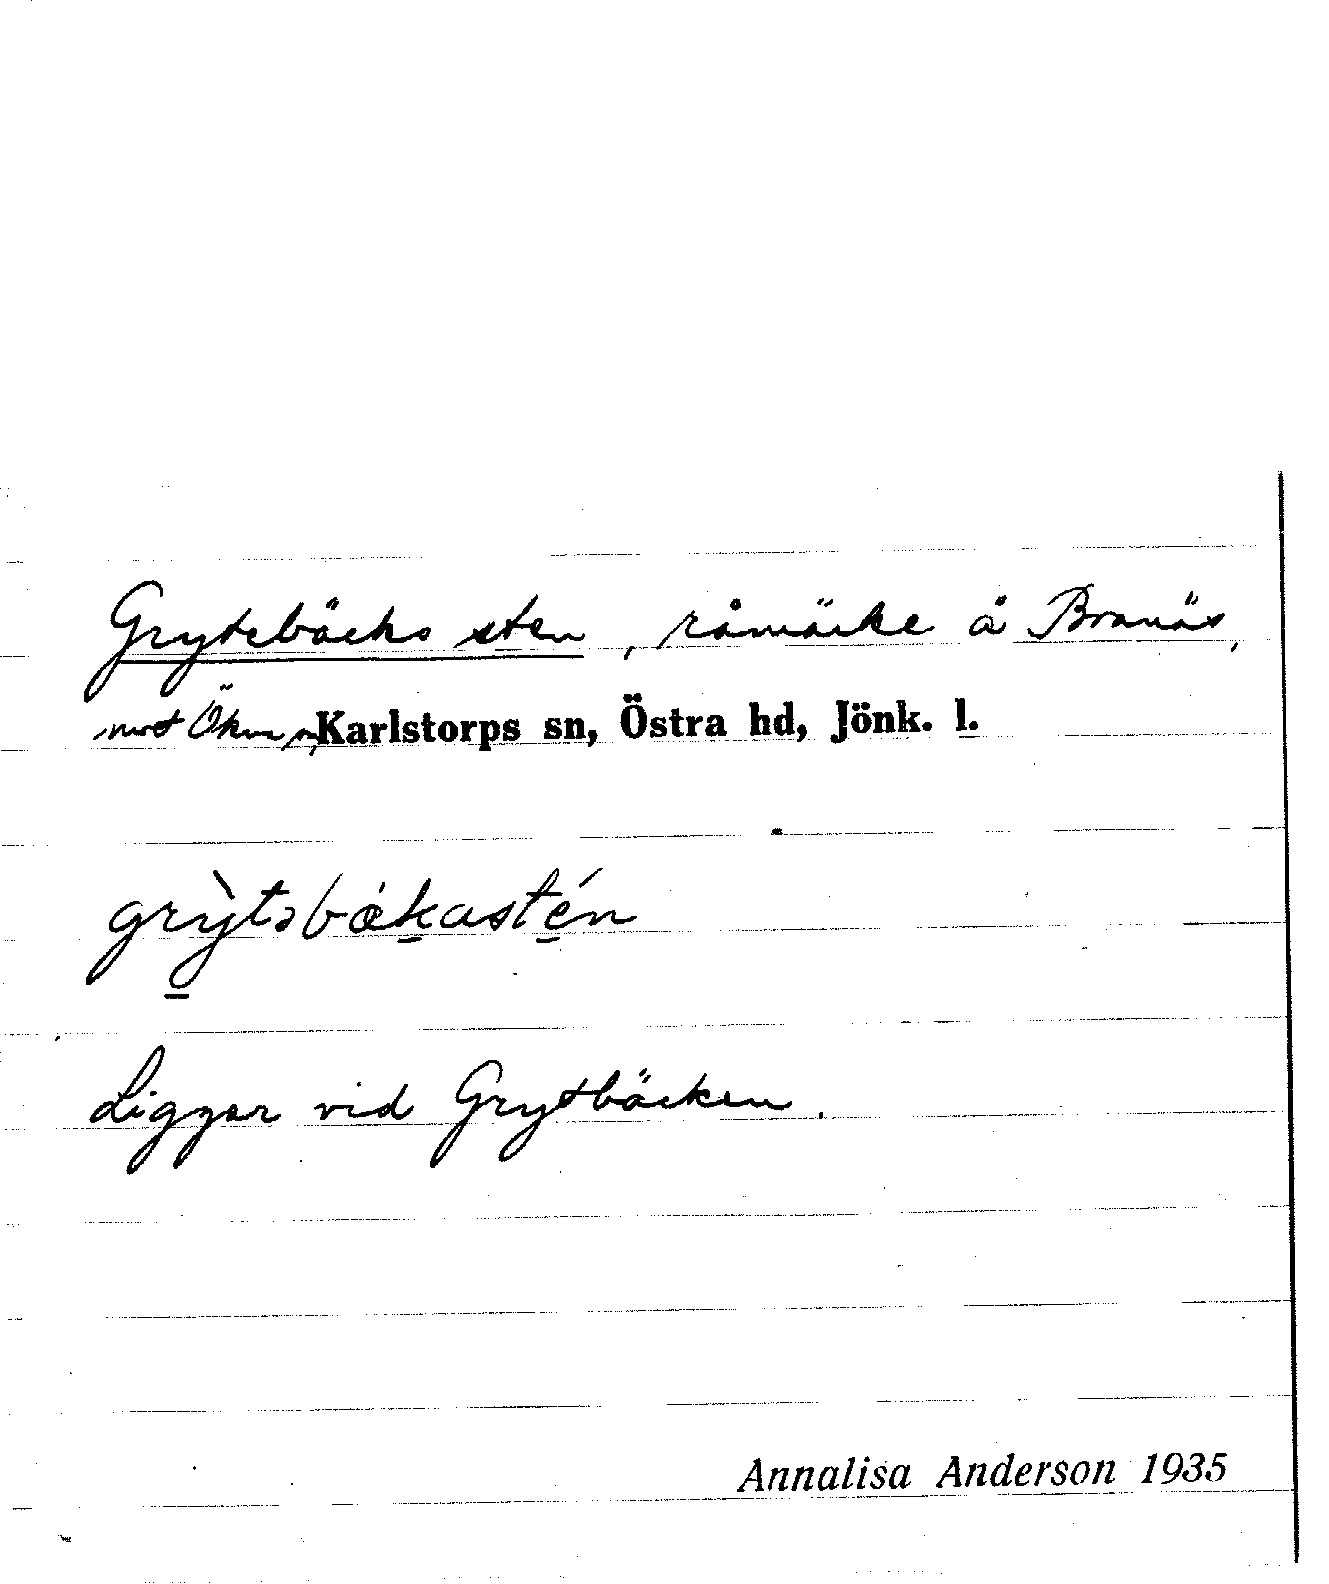 Grytebäcks sten, råmärke å Branäs,
mot Ökna sn, Karlstorps sn, Östra hd, Jönk. l.
grỳtəbækastén
Ligger vid Grytbäcken.
Annalisa Anderson 1935